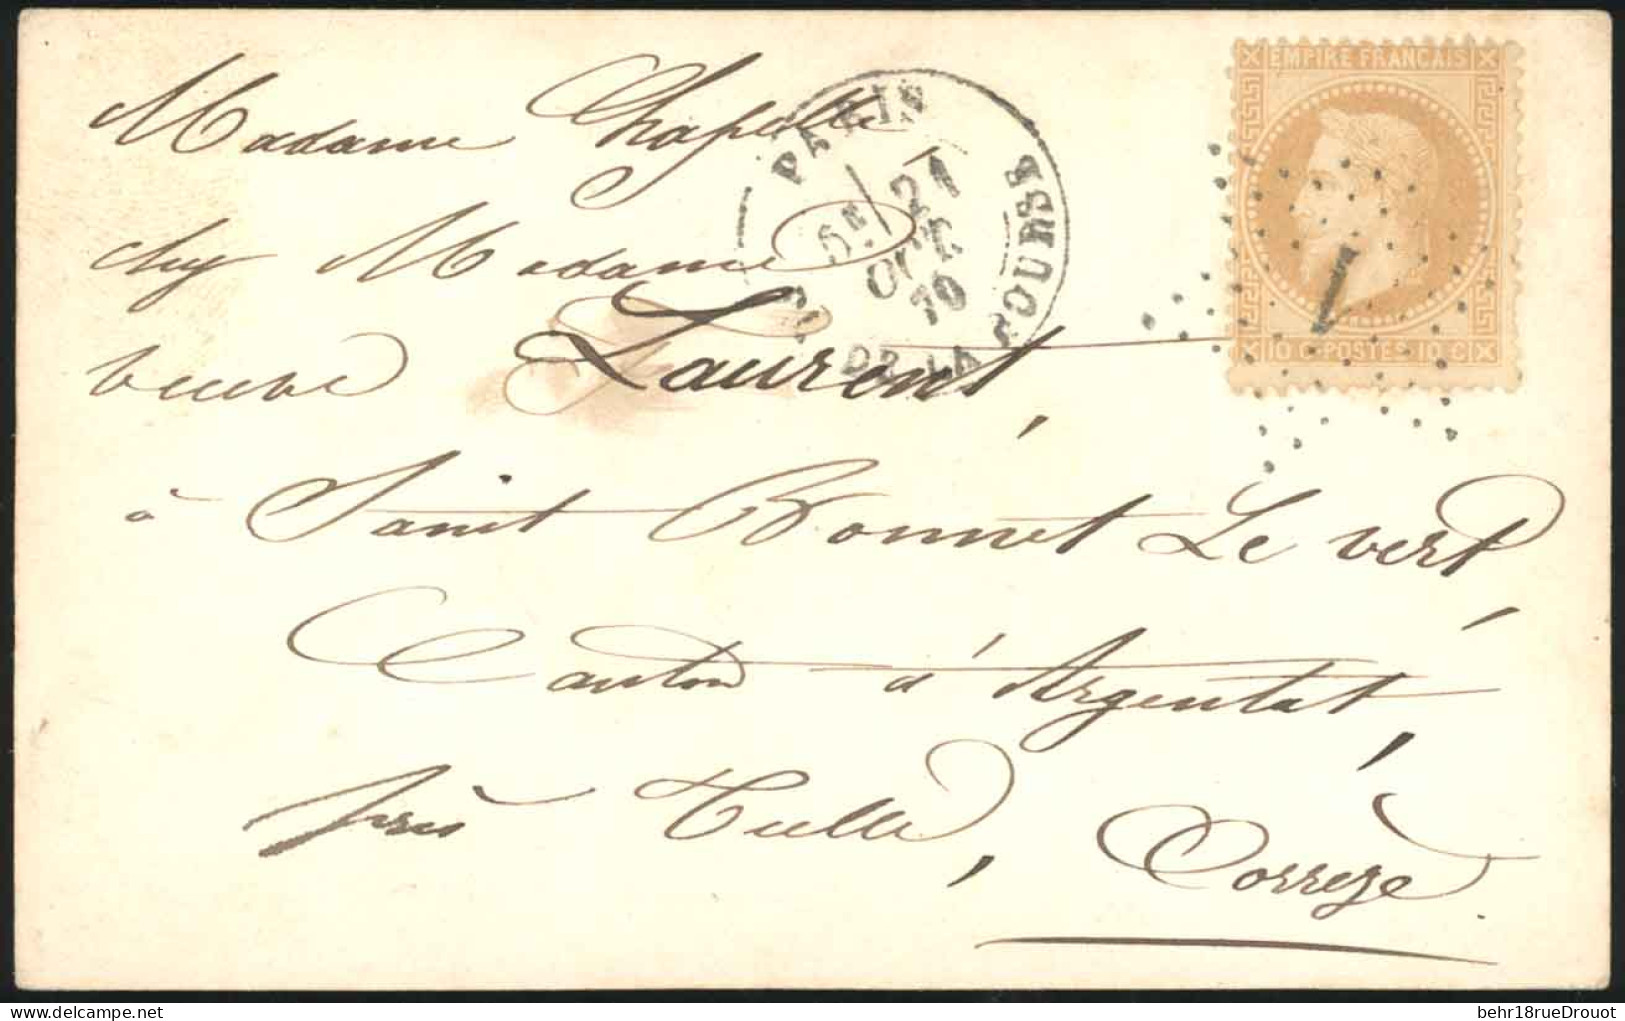 EMPIRE FRANÇAIS
Madame Chapelle
PARIS
chez Madame
6E 21
OCT.
70
PL. DE LA BOURSE
1
10 C POSTES 10 C
veuve Laurent,
à Saint Bonnet Le vert,
Canton d'Argentat,
près Tulle, Corrèze.
behr18rueDrouot